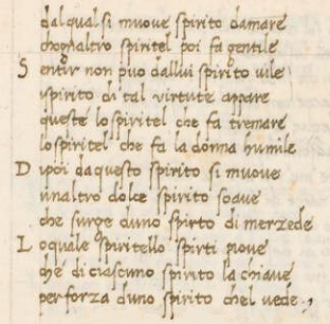 dal qual si muove spirito damare
chognaltro spiritel poi fa gentile
S entir non puo dallui spirito uile
spirito di tal virtute appare
queste lo spiritel che fa tremare
lo spiritel che fa la donna humile
D ipoi da questo spirito si muove
unaltro dolce spirito soave
che surge duno spirto di merzede
L oquale spiritello spirti piove
che di ciascuno spirito la chiave
per forza duno spirito chel vede